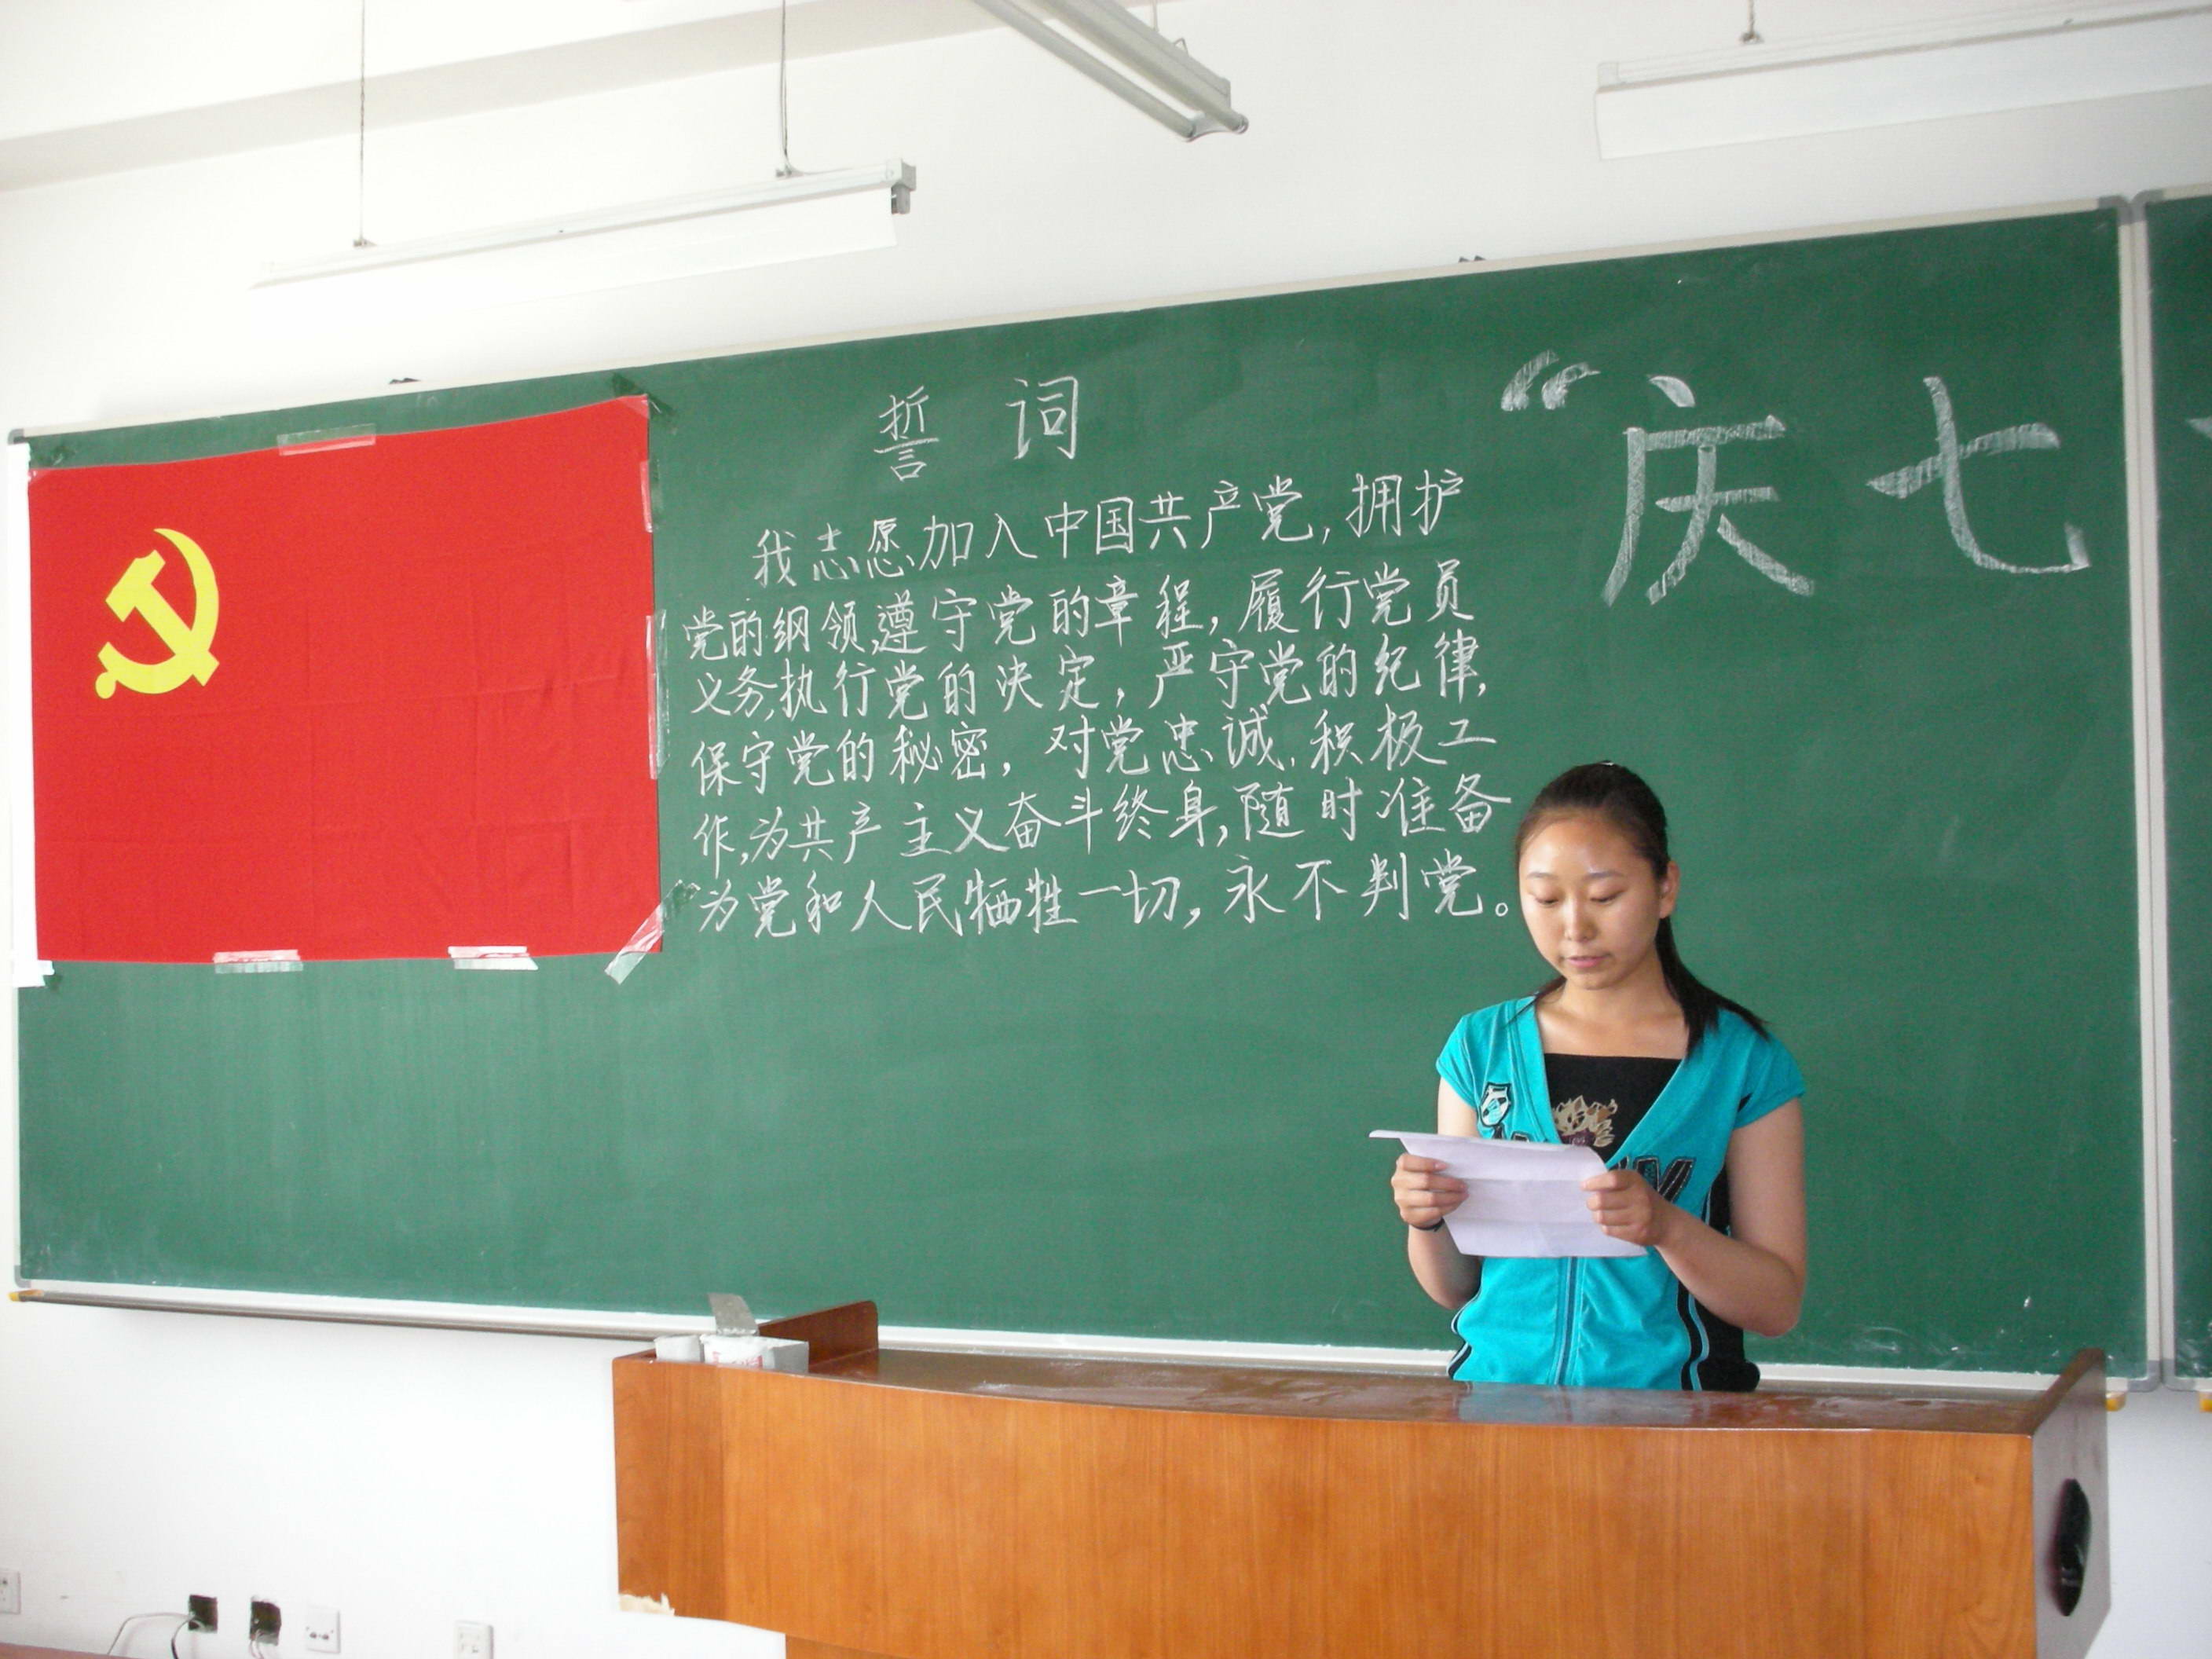 誓词
我志愿加入中国共产党,拥护
党的纲领,遵守党的章程,履行党员
义务,执行党的决定,严守党的纪律,
保守党的秘密,对党忠诚,积极工
作,为共产主义奋斗终身,随时准备
为党和人民牺牲一切,永不判党。
“庆七